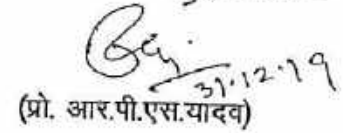 31.12.19
(प्रो. आर.पी.एस.यादव)